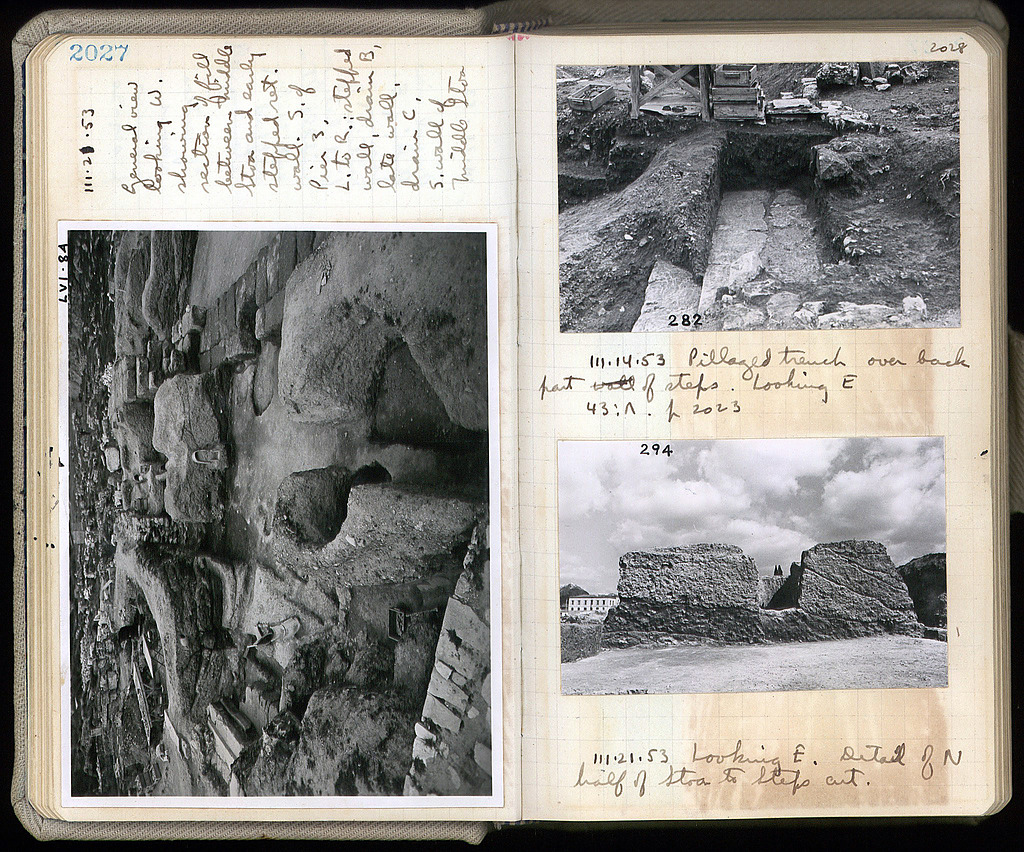 2027
111.21.53
General view
looking W.
showing
section of fill
between Middle
Stoa and early
stepped ret.
wall. S. of
Pier 3,
L. to R.: stepped
wall, drain B,
late wall,
drain C,
S. wall of
Middle Stoa
LVI.84
2028
282
111.14.53 Pillaged trench over back
part wall of steps. Looking E
43:Λ. p 2023
294
111.21.53 Looking E. Detail of N
half of Stoa to Steps cut.